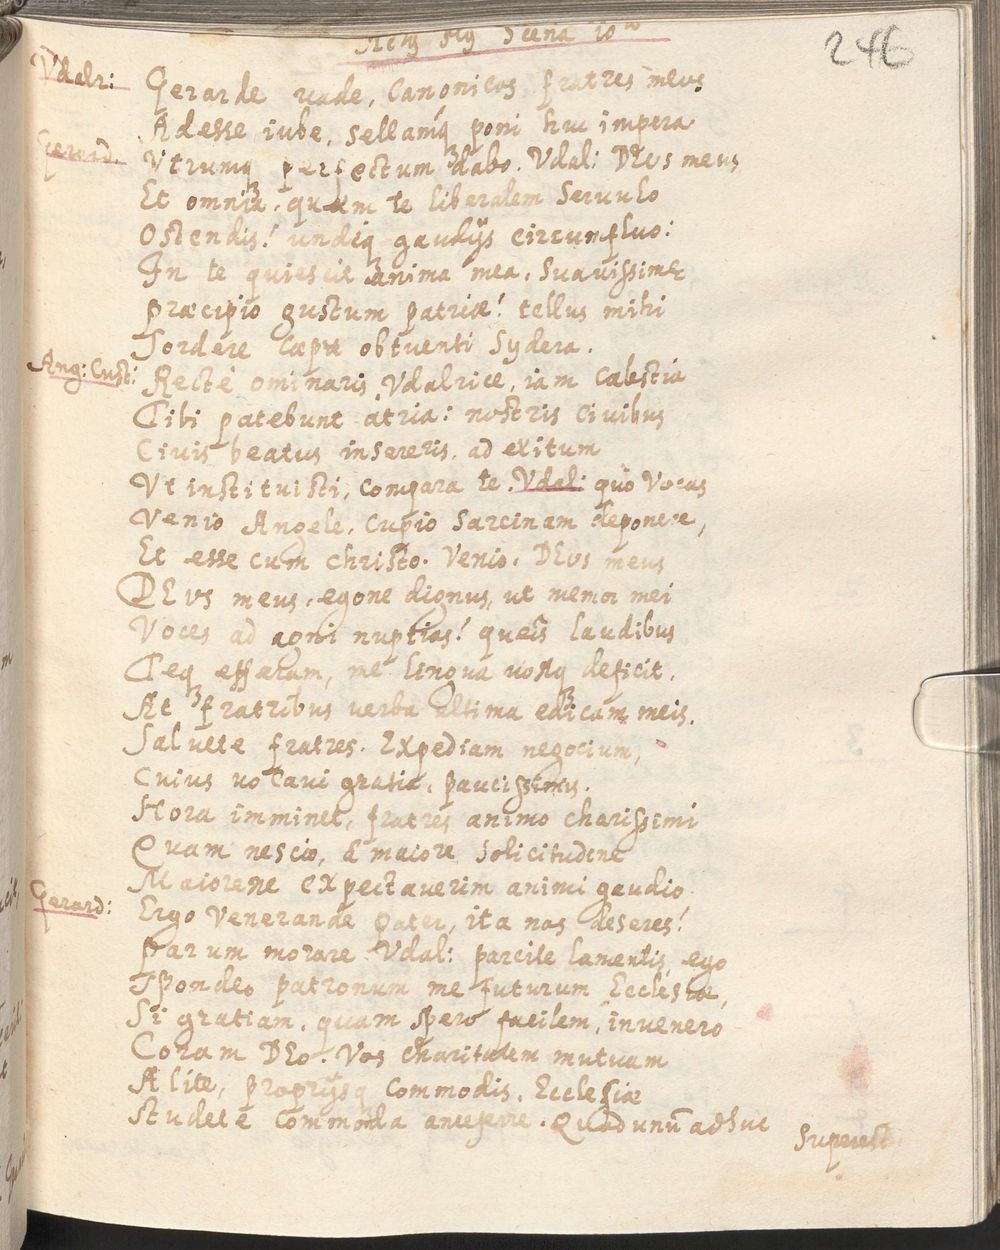 Scena 10ᵐᵃ
246
Vdalr: Gerarde uade, Canonicos fratres meos
Adesse iube, sellamq poni huc impera
Gerard. Vtrumq perfectum dabo. Vdal: DEus meus
Et omnia, quam te liberalem Seruulo
Ostendis! undiq gaudijs circumfluo:
In te quiescit anima mea, Suauissime
Præcipio gustum patriæ! tellus mihi
Sordere cæpit obtuenti Sydera.
Ang: Cust: Rectè ominaris Vdalrice, iam Cælestia
Tibi patebunt atria: nostris Ciuibus
Ciuis beatus insereris, ad exitum
Vt instituisti, compara te. Vdal: quò Vocas
Venio Angele, Cupio Sarcinam deponere,
Et esse cum Christo. Venio, DEus meus
DEus meus, egone dignus, ut memor mei
Voces ad agni nuptias! queis laudibus
Teq efferam, me lingua uoxq deficit.
At fratribus uerba ultima edicam meis.
Saluete fratres. Expediam negocium,
Cuius uocaui gratia, paucissimis.
Hora imminet, fratres animo charissimi
Quam nescio, à maiore Solicitudene
Maiorene expectauerim animi gaudio
Gerard: Ergo Venerande pater, ita nos deseres!
Parum morare. Vdal: parcite lamentis, ego
Spondeo patronum me futurum Ecclesiæ,
Si gratiam, quam spero facilem, inuenero
Coram DEo. Vos charitatem mutuam
Alite, proprijsq Commodis, Ecclesiæ
Studete Commoda anteferre. Quod unū adhuc
Superest